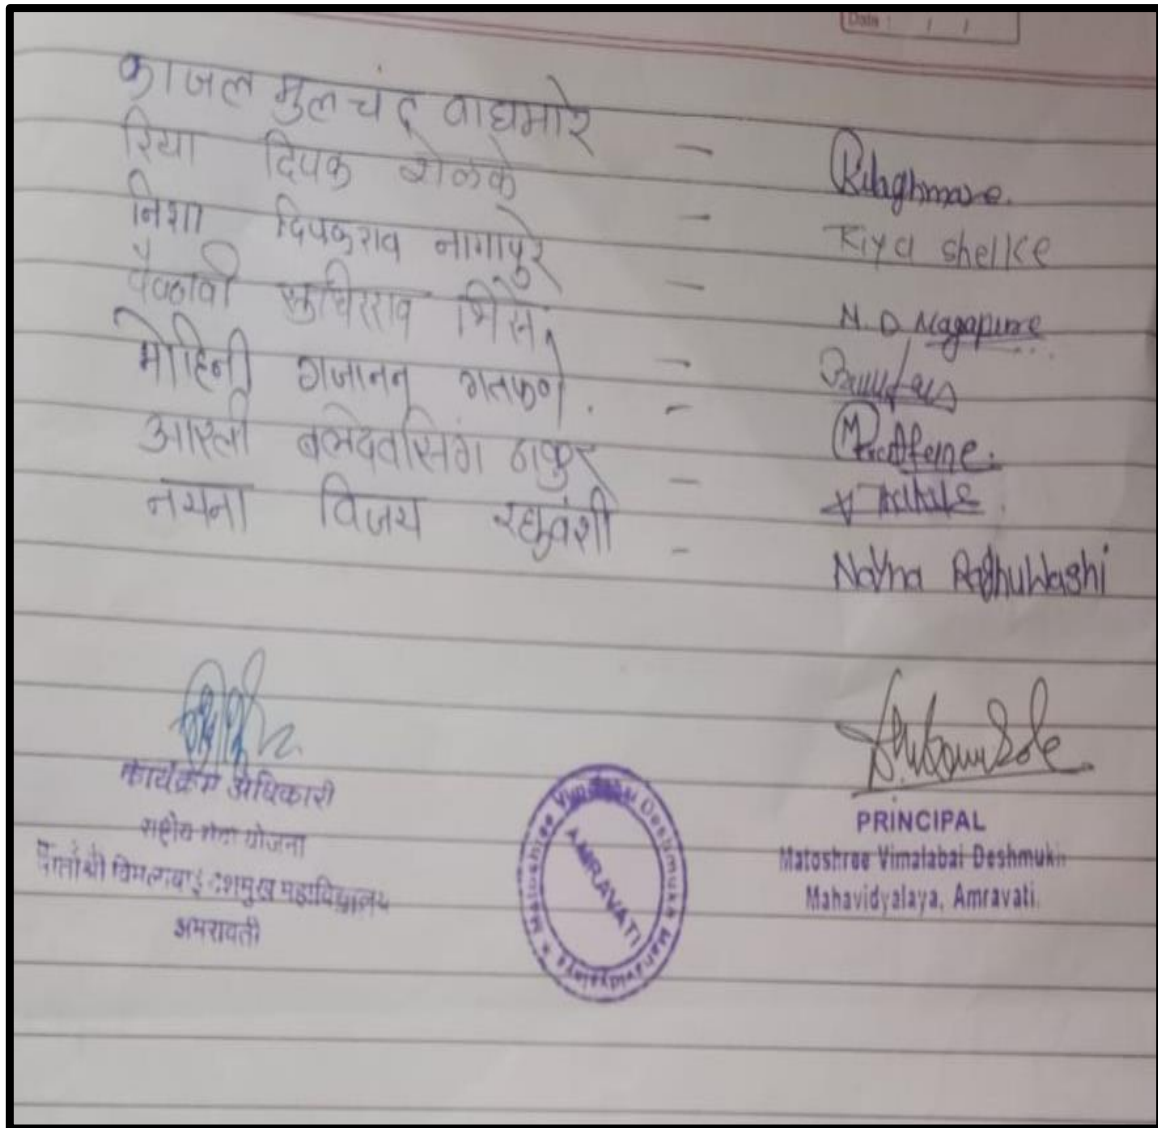 Date : / /
काजल मुलचंद वाघमारे - Kwaghmare.
रिया दिपक शेळके - Riya shelke
निशा दिपकराव नागापुरे - N. D Nagapure
वैष्णवी सुधिरराव भिसे. -
मोहिनी गजानन गतफणे. -
आरती बलदेवसिंग ठाकुर -
नयना विजय रघुवंशी - Nayna Raghuwashi
कार्यक्रम अधिकारी
राष्ट्रीय सेवा योजना
मातोश्री विमलाबाई देशमुख महाविद्यालय
अमरावती
Matoshree Vimalabai Deshmukh Mahavidyalaya
AMRAVATI
PRINCIPAL
Matoshree Vimalabai Deshmukh
Mahavidyalaya, Amravati.